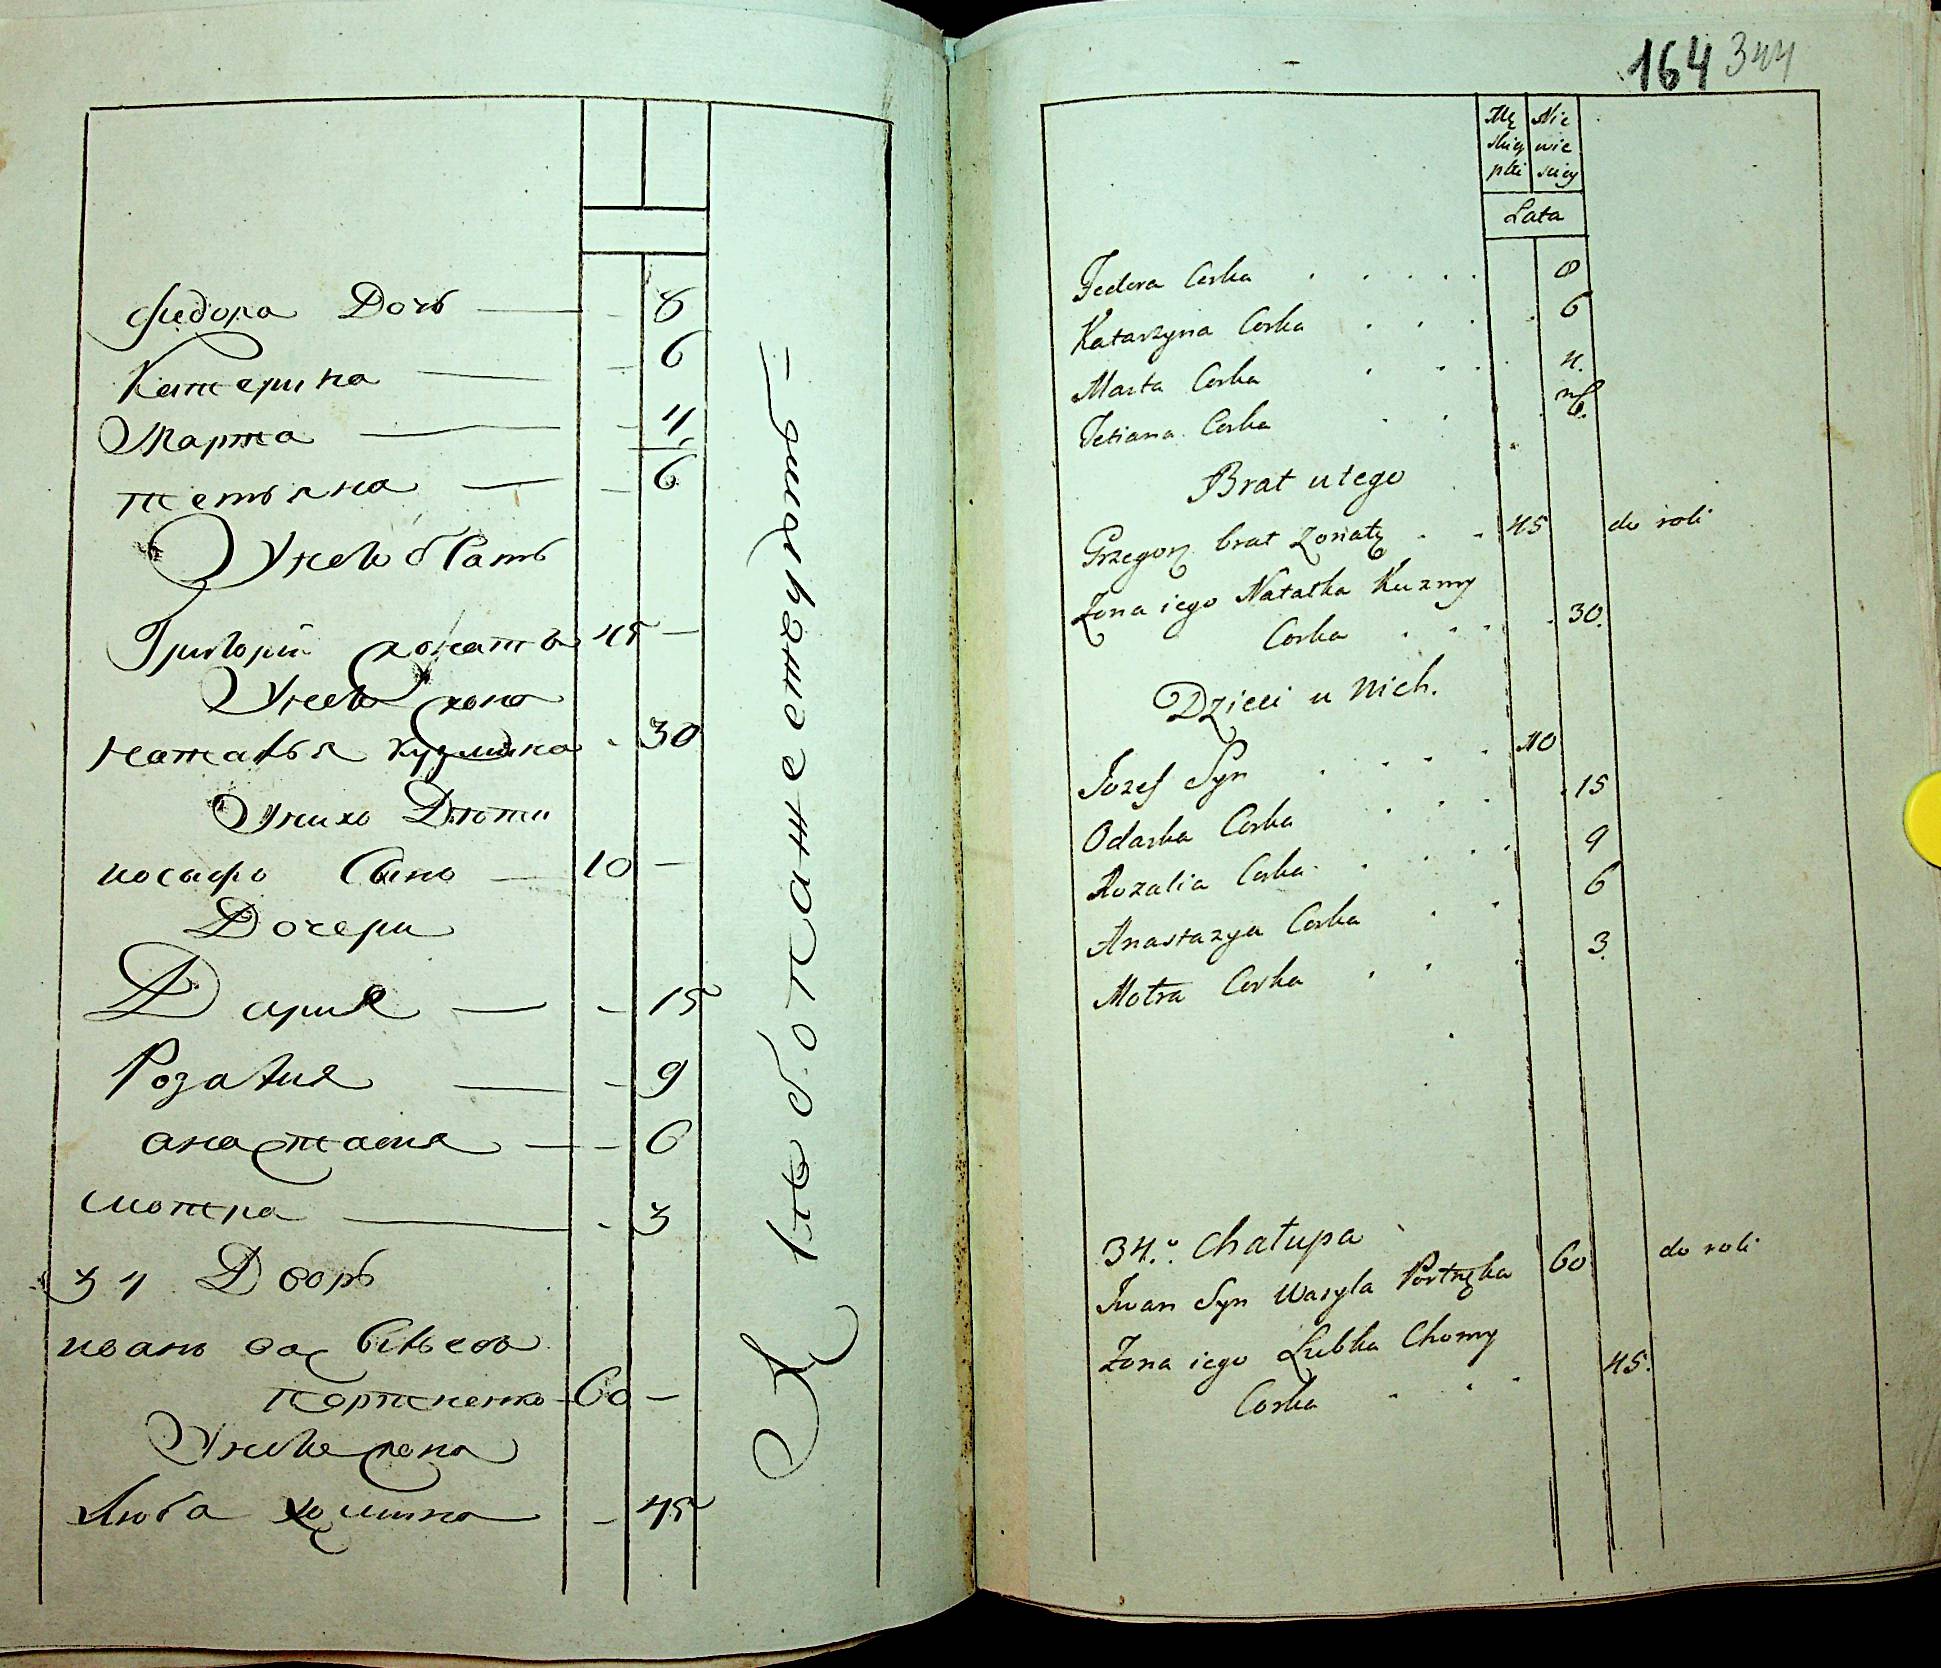 федора Дочь — - 8
Катерина — - 6
Марта — - 4
тетьяна — - 6
У него братъ
Григорий женатъ 45 —
У него жена
наталья кузмина - 30
У нихъ Дѣти
иосифъ Сынъ — 10 —
Дочери
Дария — - 15
Розалия — - 9
анастасия — - 6
мотра — - 3
34 Дворъ
иванъ васильевъ
портненко - 60 —
У него жена
люба хомина - 45
164 344
Mę skiey płci
Nie wie sciey
Lata
Fedora Corka . . . . . 8
Katarzyna Corka . . . 6
Marta Corka . . . 4.
Tetiana Corka . .
Brat u tego
Grzegorz brat Zonaty . . 45 do roli
Zona iego Natalka Kuzmy
Corka . . . 30.
Dzieci u nich.
Jozef Syn . . . . 10
Odarka Corka . . . 15
Rozalia Corka . . . . 9
Anastazya Corka . . 6
Motra Corka . . . 3.
34.º Chałupa
Iwan Syn Wasyla 60 do roli
Zona iego Lubka Chomy
Corka . . . 45.